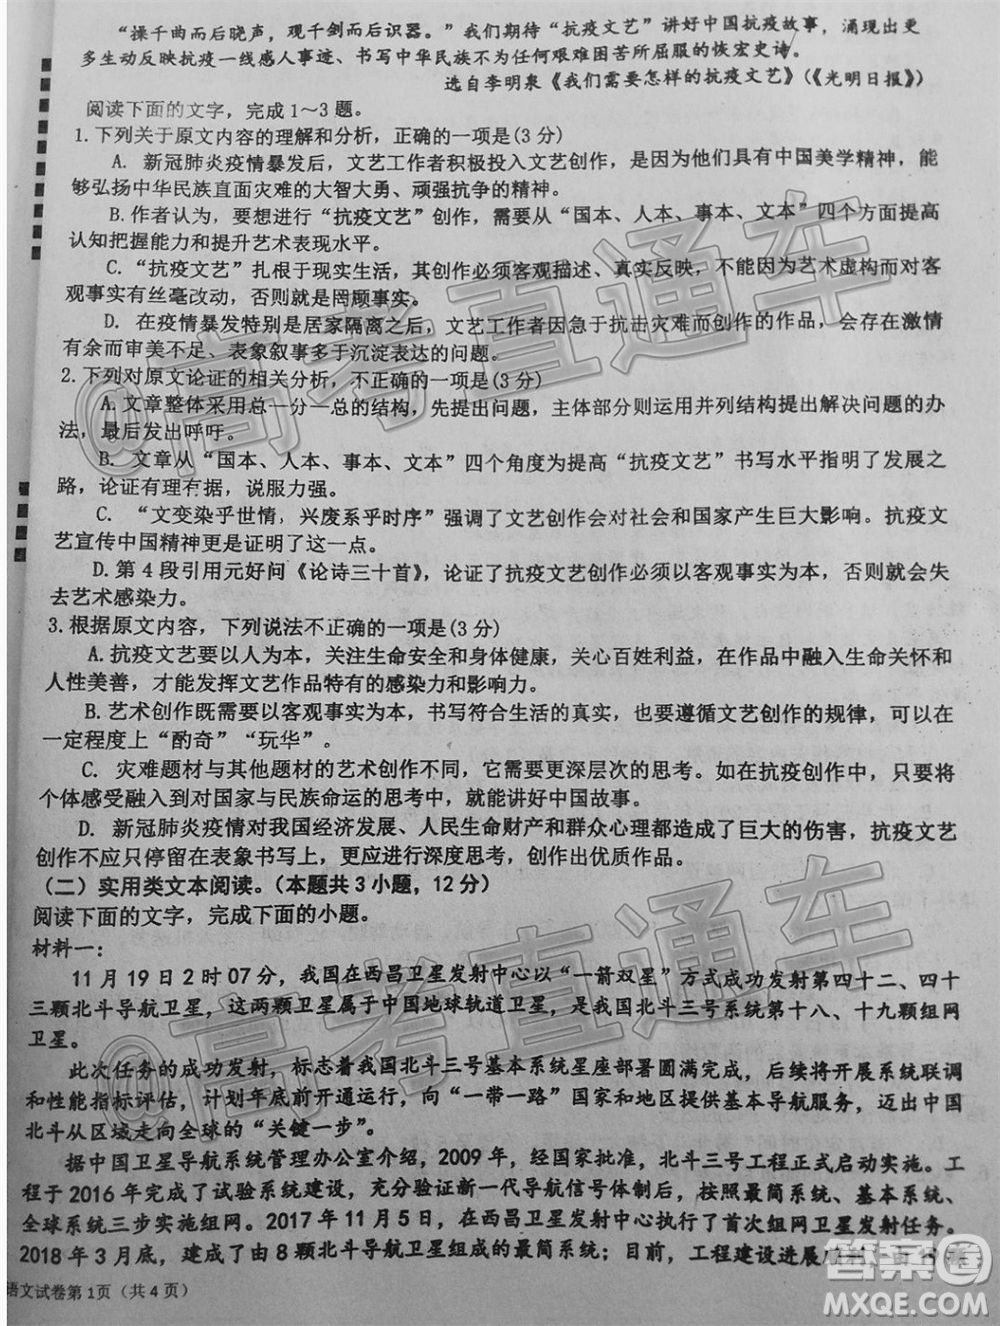 “操千曲而后晓声，观千剑而后识器。”我们期待“抗疫文艺”讲好中国抗疫故事，涌现出更
多生动反映抗疫一线感人事迹、书写中华民族不为任何艰难困苦所屈服的恢宏史诗。
选自李明泉《我们需要怎样的抗疫文艺》（《光明日报》）
阅读下面的文字，完成1～3题。
1.下列关于原文内容的理解和分析，正确的一项是(3分)
A. 新冠肺炎疫情暴发后，文艺工作者积极投入文艺创作，作品都具有中国美学精神，能
够弘扬中华民族直面灾难的大智大勇、顽强抗争的精神。
B. 作者认为，要想进行“抗疫文艺”创作，需要从“国本、人本、事本、文本”四个方面提高
认知把握能力和提升艺术表现水平。
C. “抗疫文艺”扎根于现实生活，其创作必须客观描述、真实反映，不能因为艺术虚构而对客
观事实有丝毫改动，否则就是罔顾事实。
D. 在疫情暴发特别是居家隔离之后，文艺工作者因急于抗击灾难而创作的作品，会存在激情
有余而审美不足、表象叙事多于沉淀表达的问题。
2.下列对原文论证的相关分析，不正确的一项是(3分)
A. 文章整体采用总一分一总的结构，先提出问题，主体部分则运用并列结构提出解决问题的办
法，最后发出呼吁。
B. 文章从“国本、人本、事本、文本”四个角度为提高“抗疫文艺”书写水平指明了发展
之路，论证有理有据，说服力强。
C. “文变染乎世情，兴废系乎时序”强调了文艺创作会对社会和国家产生巨大影响。抗疫文
艺宣传中国精神更是证明了这一点。
D. 第4段引用元好问《论诗三十首》，论证了抗疫文艺创作必须以客观事实为本，否则就会失
去艺术感染力。
3.根据原文内容，下列说法不正确的一项是(3分)
A. 抗疫文艺要以人为本，关注生命安全和身体健康，关心百姓利益，在作品中融入生命关怀和
人性美善，才能发挥文艺作品特有的感染力和影响力。
B. 艺术创作既需要以客观事实为本，书写符合生活的真实，也要遵循文艺创作的规律，可以在
一定程度上“酌奇”“玩华”。
C. 灾难题材与其他题材的艺术创作不同，它需要更深层次的思考。如在抗疫创作中，只要将
个体感受融入到对国家与民族命运的思考中，就能讲好中国故事。
D. 新冠肺炎疫情对我国经济发展、人民生命财产和群众心理都造成了巨大的伤害，抗疫文艺
创作不应只停留在表象书写上，更应进行深度思考，创作出优质作品。
（二）实用类文本阅读。（本题共3小题，12分）
阅读下面的文字，完成下面的小题。
材料一：
11月19日2时07分，我国在西昌卫星发射中心以“一箭双星”方式成功发射第四十二、四十
三颗北斗导航卫星，这两颗卫星属于中国地球轨道卫星，是我国北斗三号系统第十八、十九颗组网
卫星。
此次任务的成功发射，标志着我国北斗三号基本系统星座部署圆满完成，后续将开展系统联调
和性能指标评估，计划年底前开通运行，向“一带一路”国家和地区提供基本导航服务，迈出中国
北斗从区域走向全球的“关键一步”。
据中国卫星导航系统管理办公室介绍，2009年，经国家批准，北斗三号工程正式启动实施。工
程于2016年完成了试验系统建设，充分验证新一代导航信号体制后，按照最简系统、基本系统、
全球系统三步实施组网。2017年11月5日，在西昌卫星发射中心执行了首次组网卫星发射任务。
2018年3月底，建成了由8颗北斗导航卫星组成的最简系统；目前，工程建设进展顺利
语文试卷第1页（共4页）
@高考直通车
@高考直通车
答案圈
MXQE.COM